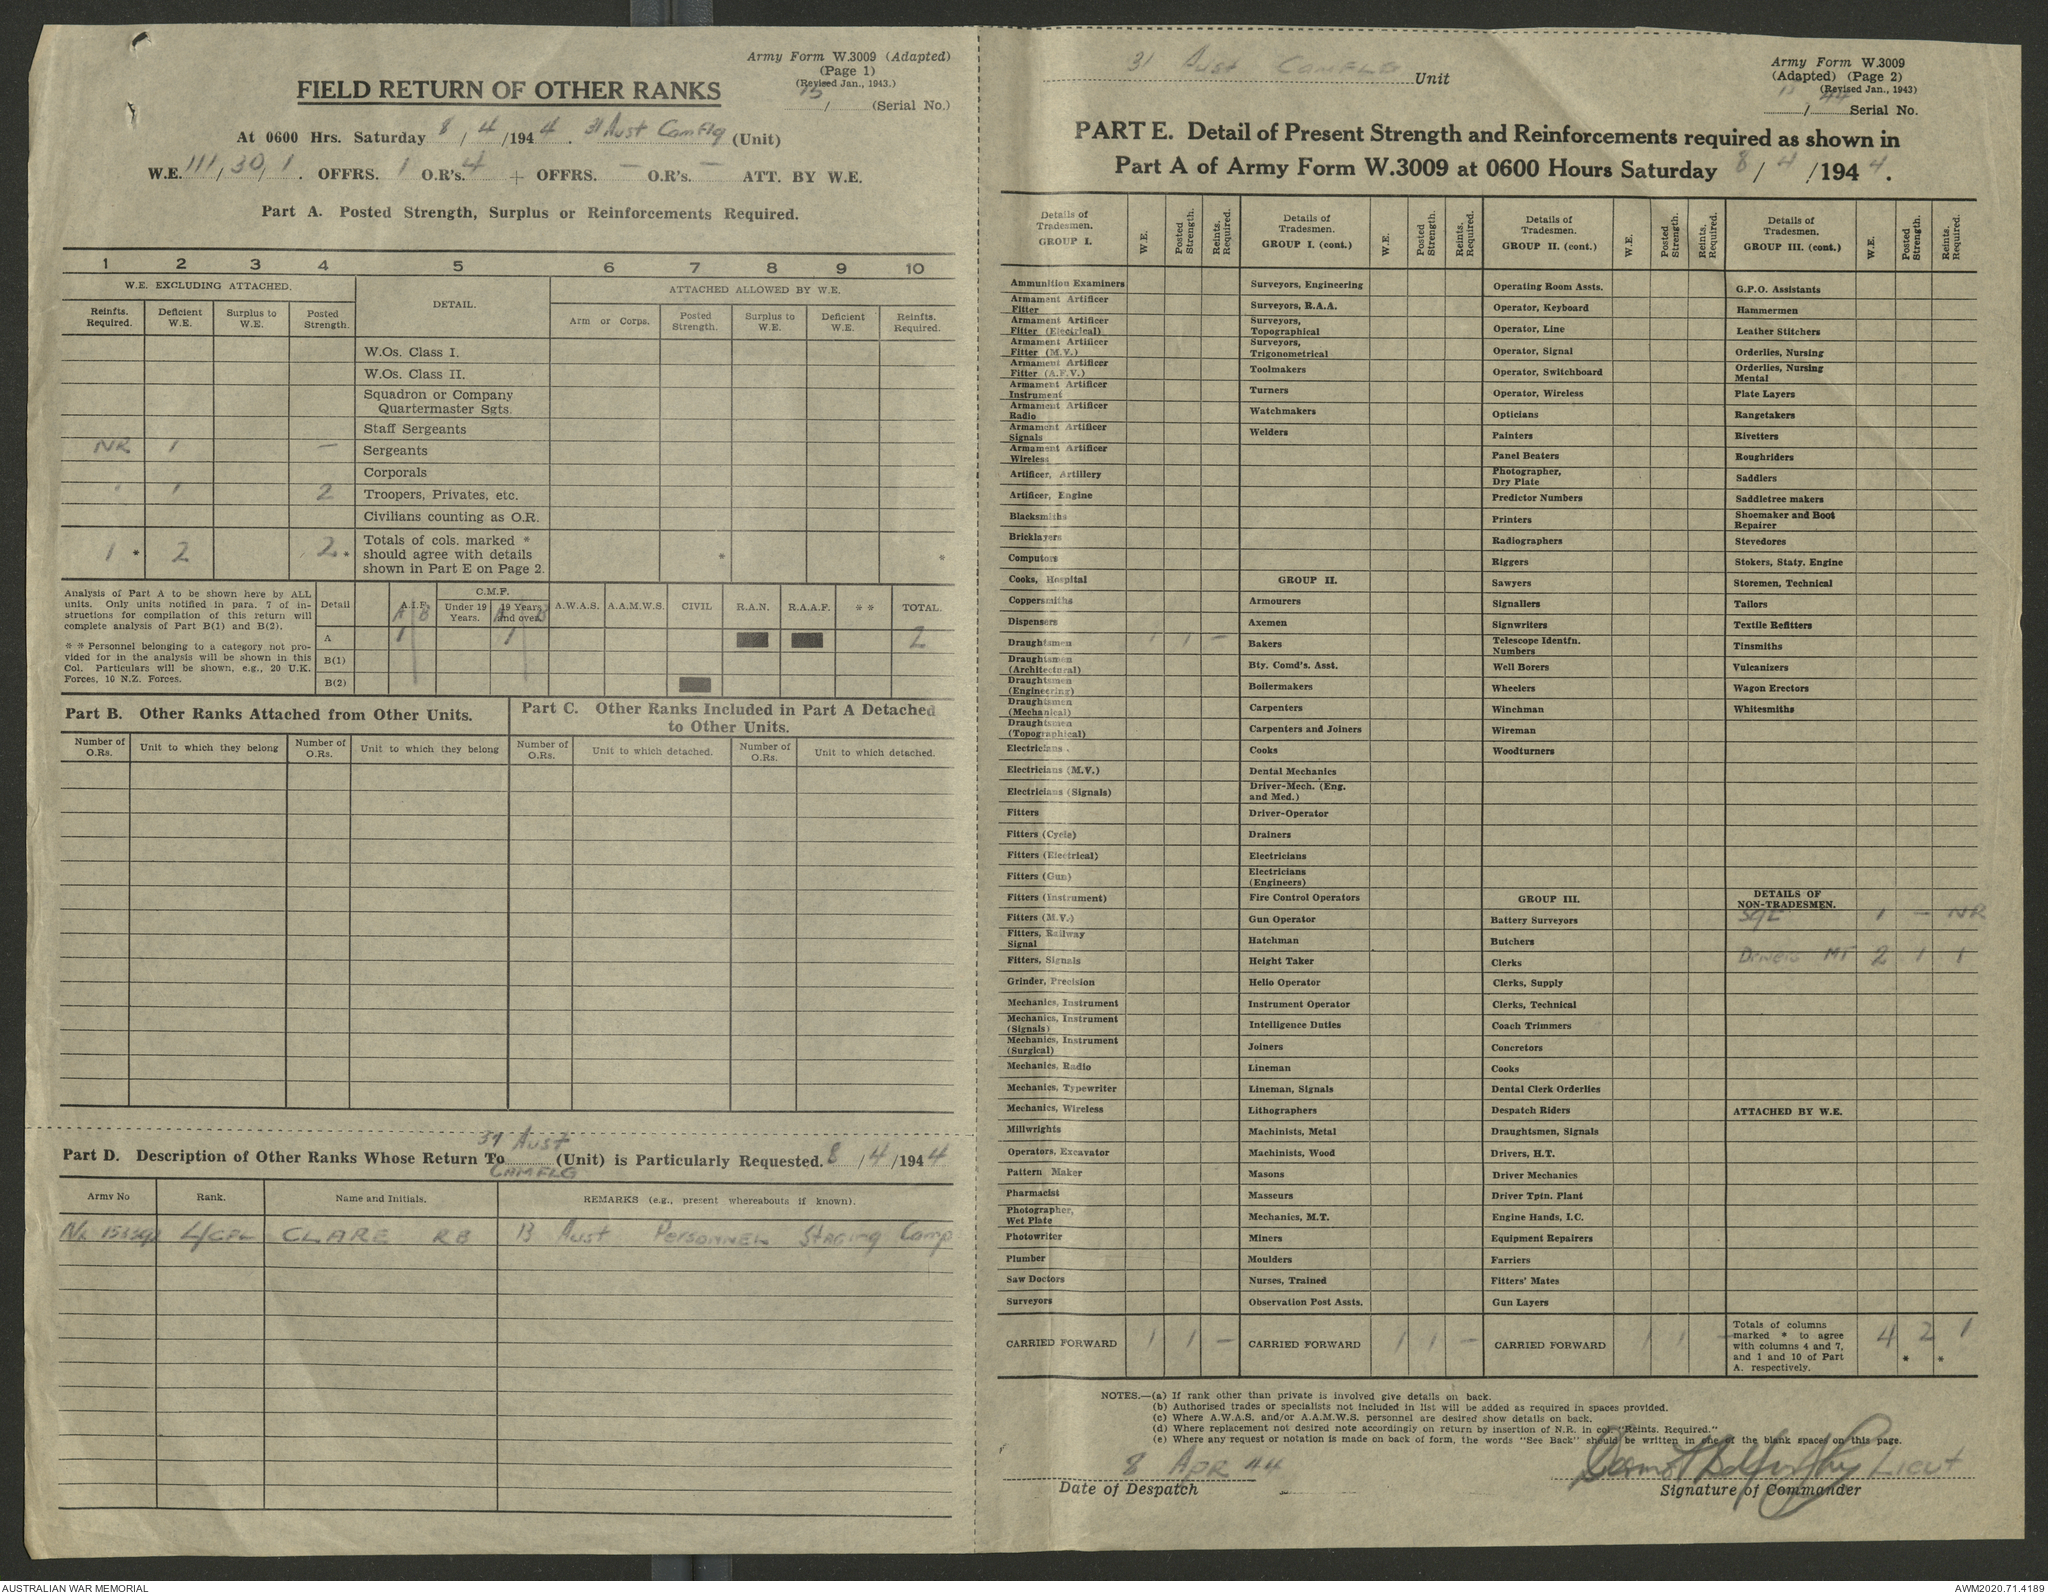 Army Form W.3009 (Adapted)
(Page 1)
(Revised Jan., 1943.)
15 / (Serial No.)
FIELD RETURN OF OTHER RANKS
At 0600 Hrs. Saturday 8 / 4 /194 4 . 31 Aust CamFlg (Unit)
W.E. 111 / 30 / 1 . OFFRS. 1 O.R's. 4 + OFFRS. — O.R's. — ATT. BY W.E.
Part A. Posted Strength, Surplus or Reinforcements Required.
1 2 3 4 5 6 7 8 9 10
W.E. EXCLUDING ATTACHED. DETAIL. ATTACHED ALLOWED BY W.E.
Reinfts. Required. Deficient W.E. Surplus to W.E. Posted Strength. Arm or Corps. Posted Strength. Surplus to W.E. Deficient W.E. Reinfts. Required.
W.Os. Class I.
W.Os. Class II.
Squadron or Company
Quartermaster Sgts.
Staff Sergeants
NR 1 — Sergeants
Corporals
1 1 2 Troopers, Privates, etc.
Civilians counting as O.R.
1 * 2 2 * Totals of cols. marked * * *
should agree with details
shown in Part E on Page 2.
Analysis of Part A to be shown here by ALL
units. Only units notified in para. 7 of in-
structions for compilation of this return will
complete analysis of Part B(1) and B(2).
* * Personnel belonging to a category not pro-
vided for in the analysis will be shown in this
Col. Particulars will be shown, e.g., 20 U.K.
Forces, 10 N.Z. Forces.
Detail A.I.F. C.M.F. Under 19 Years. 19 Years and over. A.W.A.S. A.A.M.W.S. CIVIL R.A.N. R.A.A.F. * * TOTAL.
A B A B
A 1 1 2
B(1)
B(2)
Part B. Other Ranks Attached from Other Units.
Part C. Other Ranks Included in Part A Detached
to Other Units.
Number of O.Rs. Unit to which they belong Number of O.Rs. Unit to which they belong Number of O.Rs. Unit to which detached. Number of O.Rs. Unit to which detached.
31 Aust
Part D. Description of Other Ranks Whose Return To (Unit) is Particularly Requested. 8 / 4 /194 4
CAMFLG
Army No Rank. Name and Initials. REMARKS (e.g., present whereabouts if known).
L/CPL CLARE RB 13 Aust Personnel Staging Camp
31 Aust CAMFLG Unit
Army Form W.3009
(Adapted) (Page 2)
(Revised Jan., 1943)
15 / 44 Serial No.
PART E. Detail of Present Strength and Reinforcements required as shown in
Part A of Army Form W.3009 at 0600 Hours Saturday 8 / 4 /194 4 .
Details of Tradesmen. GROUP I. W.E. Posted Strength. Reints. Required.
Ammunition Examiners
Armament Artificer Fitter
Armament Artificer Fitter (Electrical)
Armament Artificer Fitter (M.V.)
Armament Artificer Fitter (A.F.V.)
Armament Artificer Instrument
Armament Artificer Radio
Armament Artificer Signals
Armament Artificer Wireless
Artificer, Artillery
Artificer, Engine
Blacksmiths
Bricklayers
Computors
Cooks, Hospital
Coppersmiths
Dispensers
Draughtsmen 1 1 —
Draughtsmen (Architectural)
Draughtsmen (Engineering)
Draughtsmen (Mechanical)
Draughtsmen (Topographical)
Electricians .
Electricians (M.V.)
Electricians (Signals)
Fitters
Fitters (Cycle)
Fitters (Electrical)
Fitters (Gun)
Fitters (Instrument)
Fitters (M.V.)
Fitters, Railway Signal
Fitters, Signals
Grinder, Precision
Mechanics, Instrument
Mechanics, Instrument (Signals)
Mechanics, Instrument (Surgical)
Mechanics, Radio
Mechanics, Typewriter
Mechanics, Wireless
Millwrights
Operators, Excavator
Pattern Maker
Pharmacist
Photographer, Wet Plate
Photowriter
Plumber
Saw Doctors
Surveyors
CARRIED FORWARD 1 1 —
Details of Tradesmen. GROUP I. (cont.) W.E. Posted Strength. Reints. Required.
Surveyors, Engineering
Surveyors, R.A.A.
Surveyors, Topographical
Surveyors, Trigonometrical
Toolmakers
Turners
Watchmakers
Welders
GROUP II.
Armourers
Axemen
Bakers
Bty. Comd's. Asst.
Boilermakers
Carpenters
Carpenters and Joiners
Cooks
Dental Mechanics
Driver-Mech. (Eng. and Med.)
Driver-Operator
Drainers
Electricians
Electricians (Engineers)
Fire Control Operators
Gun Operator
Hatchman
Height Taker
Hello Operator
Instrument Operator
Intelligence Duties
Joiners
Lineman
Lineman, Signals
Lithographers
Machinists, Metal
Machinists, Wood
Masons
Masseurs
Mechanics, M.T.
Miners
Moulders
Nurses, Trained
Observation Post Assts.
CARRIED FORWARD 1 1 —
Details of Tradesmen. GROUP II. (cont.) W.E. Posted Strength. Reints. Required.
Operating Room Assts.
Operator, Keyboard
Operator, Line
Operator, Signal
Operator, Switchboard
Operator, Wireless
Opticians
Painters
Panel Beaters
Photographer, Dry Plate
Predictor Numbers
Printers
Radiographers
Riggers
Sawyers
Signallers
Signwriters
Telescope Identfn. Numbers
Well Borers
Wheelers
Winchman
Wireman
Woodturners
GROUP III.
Battery Surveyors
Butchers
Clerks
Clerks, Supply
Clerks, Technical
Coach Trimmers
Concretors
Cooks
Dental Clerk Orderlies
Despatch Riders
Draughtsmen, Signals
Drivers, H.T.
Driver Mechanics
Driver Tptn. Plant
Engine Hands, I.C.
Equipment Repairers
Farriers
Fitters' Mates
Gun Layers
CARRIED FORWARD 1 1 —
Details of Tradesmen. GROUP III. (cont.) W.E. Posted Strength. Reints. Required.
G.P.O. Assistants
Hammermen
Leather Stitchers
Orderlies, Nursing
Orderlies, Nursing Mental
Plate Layers
Rangetakers
Rivetters
Roughriders
Saddlers
Saddletree makers
Shoemaker and Boot Repairer
Stevedores
Stokers, Staty. Engine
Storemen, Technical
Tailors
Textile Refitters
Tinsmiths
Vulcanizers
Wagon Erectors
Whitesmiths
DETAILS OF NON-TRADESMEN.
Sgt 1 — NR
Drivers MT 2 1 1
ATTACHED BY W.E.
Totals of columns marked * to agree with columns 4 and 7, and 1 and 10 of Part A. respectively. 4 2 * 1 *
NOTES.—(a) If rank other than private is involved give details on back.
(b) Authorised trades or specialists not included in list will be added as required in spaces provided.
(c) Where A.W.A.S. and/or A.A.M.W.S. personnel are desired show details on back.
(d) Where replacement not desired note accordingly on return by insertion of N.R. in col. "Reints. Required."
(e) Where any request or notation is made on back of form, the words "See Back" should be written in one of the blank spaces on this page.
8 APR 44 Lieut
Date of Despatch Signature of Commander
AUSTRALIAN WAR MEMORIAL AWM2020.71.4189